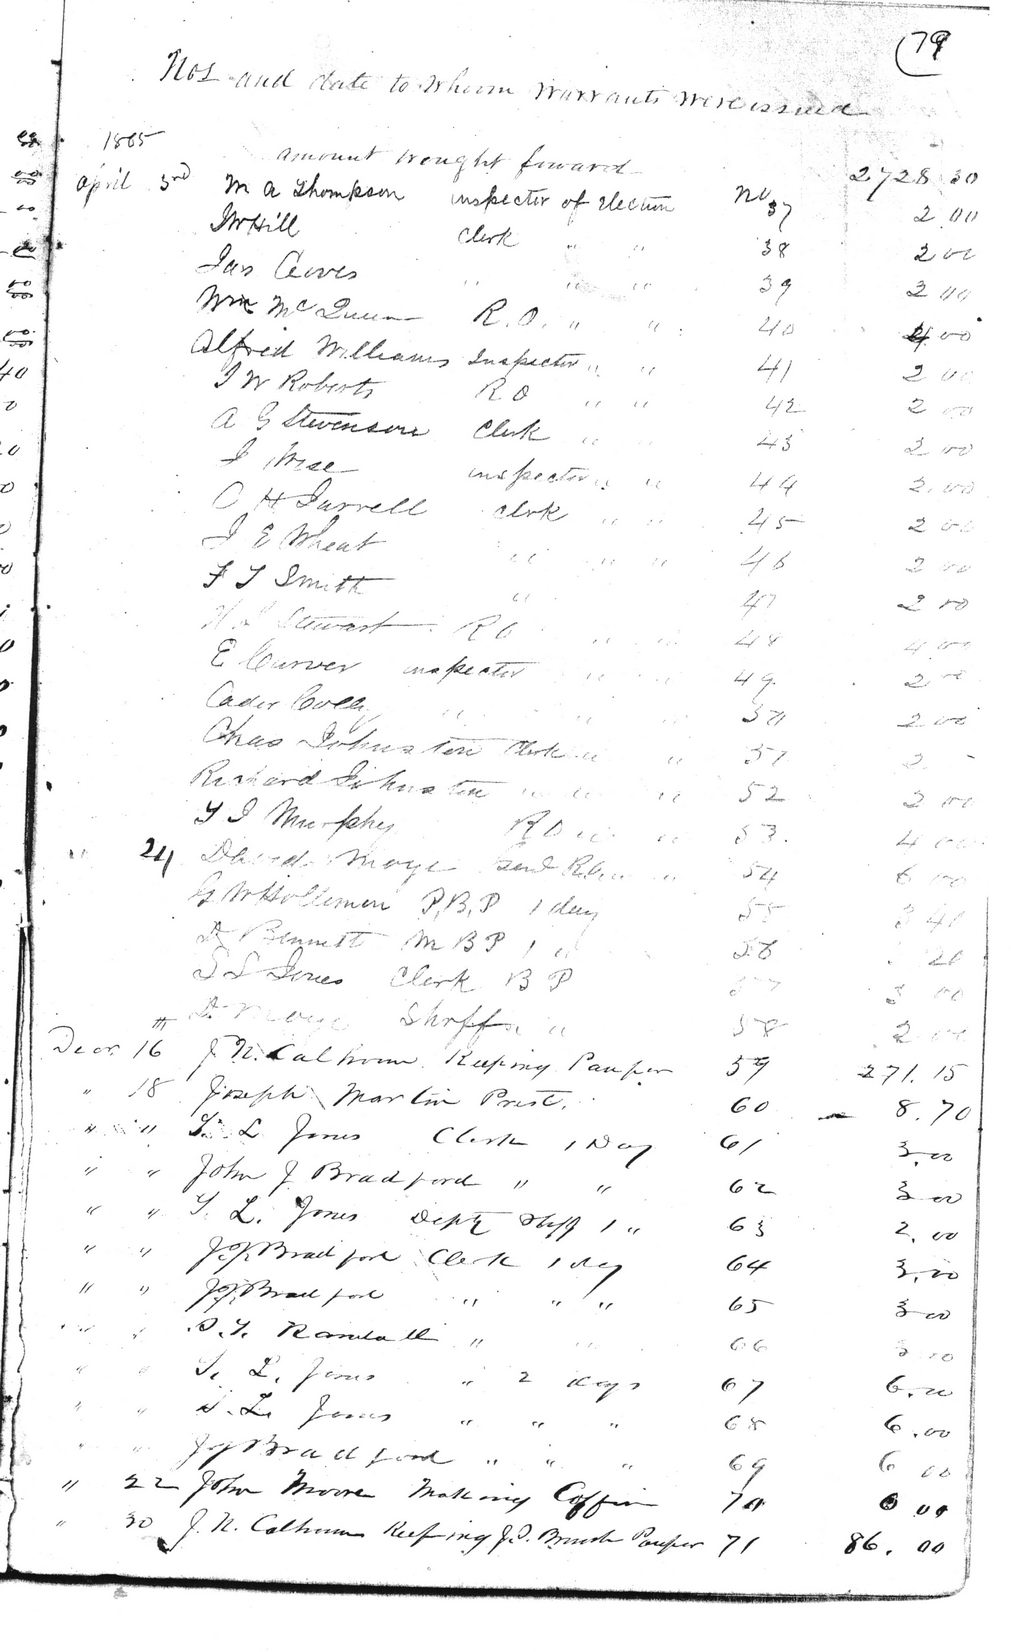 79
Nos and date to whom warrants were issued
1865
amount brought forward 2728.30
april 3rd M A Thompson inspector of election No 37 2.00
J W Hill Clerk " " 38 2 00
Jas " " " 39 2 00
Wm McQueen R.O. " " 40 4 00
Alfred Williams Inspector " " 41 2 00
J W Roberts R O " " 42 2 00
A G Stevenson Clerk " " 43 2 00
J Wise inspector " " 44 2.00
O H Farrell clrk " " 45 2 00
J E Wheat " " " 46 2 00
F T Smith " 47 2 00
Stewart R O " " 48 4 00
E Carver inspector " " 49 2 00
Cader " " " 50 2 00
Chas Johnston Clerk " " 51 2
Richard Johnston " " " 52 2 00
T J Murphy R O " " 53 4 00
24 David Moye " " 54 6 00
G W Holleman P.B.P 1 day 55 3 40
D Bennett M B P 1 " 56 20
T L Jones Clerk B P 57 3 00
D Moye Shrff " " 58 2 00
Decr 16th J. N. Calhoun Keeping Pauper 59 271.15
" 18 Joseph Martin Prest. 60 8.70
" " T. L Jones Clerk 1 Day 61 3.00
" " John J Bradford " " 62 3 00
" " T. L. Jones Depty Shff 1 " 63 2.00
" " J. J. Bradford Clerk 1 day 64 3.00
" " J. J. Bradford " " " 65 3 00
" " Randall " " 66 3 00
" " T. L. Jones " 2 days 67 6.00
" " T. L. Jones " " " 68 6.00
" " J J Bradford " " " 69 6 00
" 22 John Moore Making Coffin 70 00
" 30 J. N. Calhoun Keeping Pauper 71 86.00